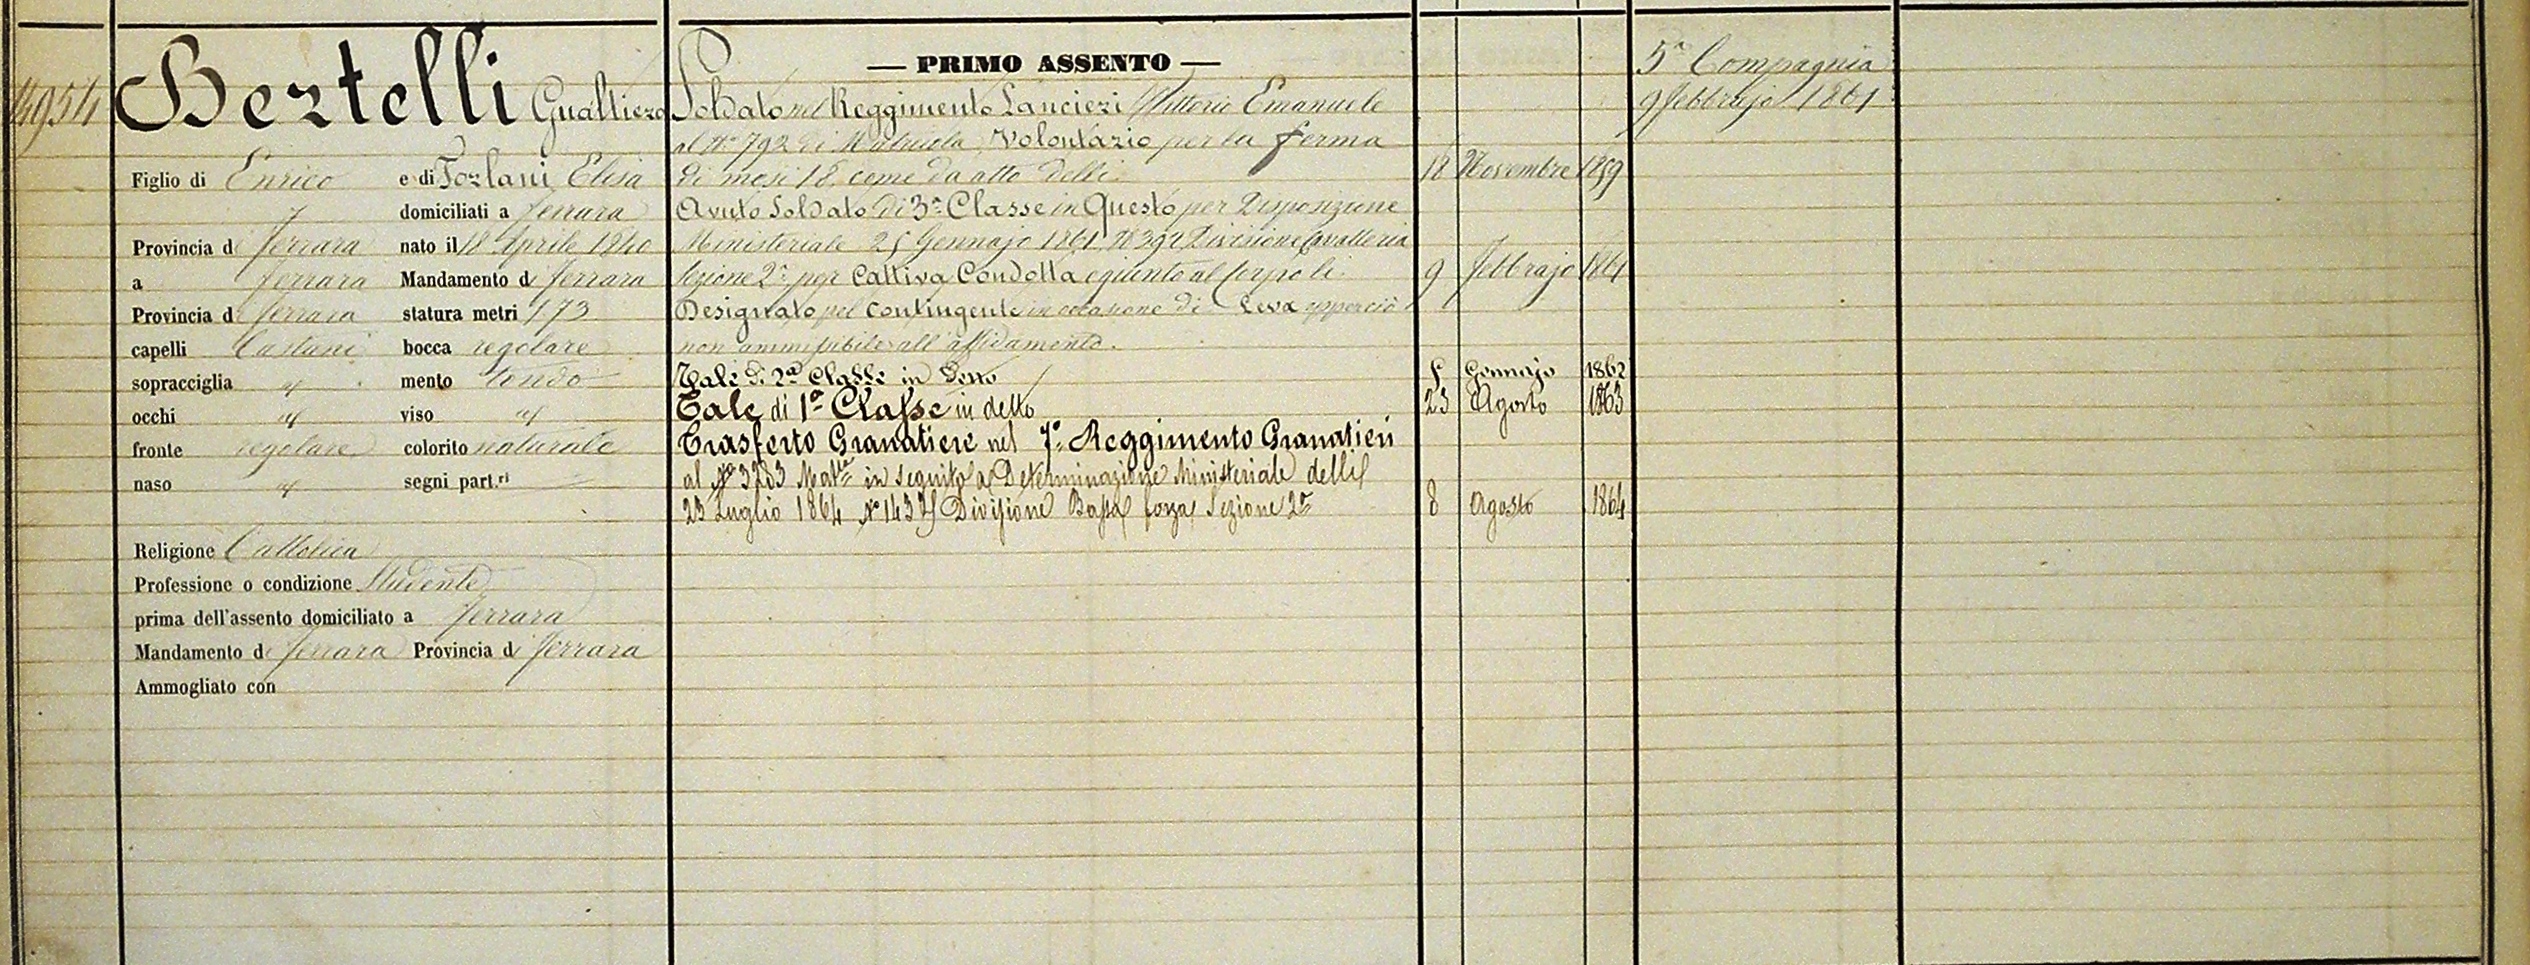 4954
Bertelli Gualtiero
Figlio di Enrico e di Forlani Elisa
domiciliati a Ferrara
Provincia di Ferrara nato il 18 Aprile 1840
a Ferrara Mandamento di Ferrara
Provincia di Ferrara statura metri 1,73
capelli Castani bocca regolare
sopracciglia " mento tondo
occhi " viso "
fronte regolare colorito naturale
naso " segni part.ri —
Religione Cattolica
Professione o condizione Studente
prima dell'assento domiciliato a Ferrara
Mandamento di Ferrara Provincia di Ferrara
Ammogliato con
— PRIMO ASSENTO —
Soldato nel Reggimento Lancieri Vittorio Emanuele
al No 792 di Matricola, Volontario per la ferma
di mesi 18, come da atto delli 18 Novembre 1859
Avuto Soldato di 3a Classe in Questo per Disposizione
Ministeriale 25 Gennajo 1861, N 392 Divisione Cavalleria
Sezione 2a per Cattiva Condotta e giunto al Corpo li 9 Febbrajo 1861
Designato pel Contingente in occasione di Leva epperciò
non ammissibile all'affidamento.
Tale di 2a Classe in Detto Gennajo 1862
Tale di 1a Classe in detto 23 Agosto 1863
Trasferto Granatiere nel 7o Reggimento Granatieri
al No 3283 Matla in seguito a Determinazione Ministeriale delli
23 Luglio 1864 No Divisione Bassa forza Sezione 2a 8 Agosto 1864
5a Compagnia
9 febbrajo 1861